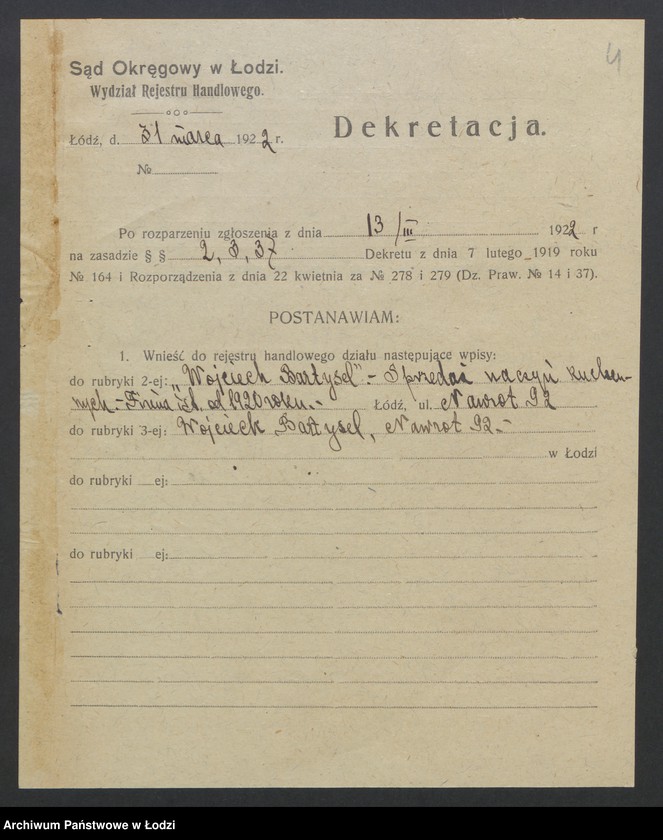 4
Sąd Okręgowy w Łodzi.
Wydział Rejestru Handlowego.
Łódź, d. 31 marca 1922 r.
Dekretacja.
№
Po rozparzeniu zgłoszenia z dnia 13/III 1922 r
na zasadzie § § 2, 3, 37 Dekretu z dnia 7 lutego 1919 roku
№ 164 i Rozporządzenia z dnia 22 kwietnia za № 278 i 279 (Dz. Praw. № 14 i 37).
POSTANAWIAM:
1. Wnieść do rejestru handlowego działu następujące wpisy:
do rubryki 2-ej: „Wojciech Bartysel".- Sprzedaż naczyń kuchen-
nych.- Firma istn. od 1920 roku.- Łódź, ul. Nawrot 92
do rubryki 3-ej: Wojciech Bartysel, Nawrot 92.-
w Łodzi
do rubryki ej:
do rubryki ej:
Archiwum Państwowe w Łodzi